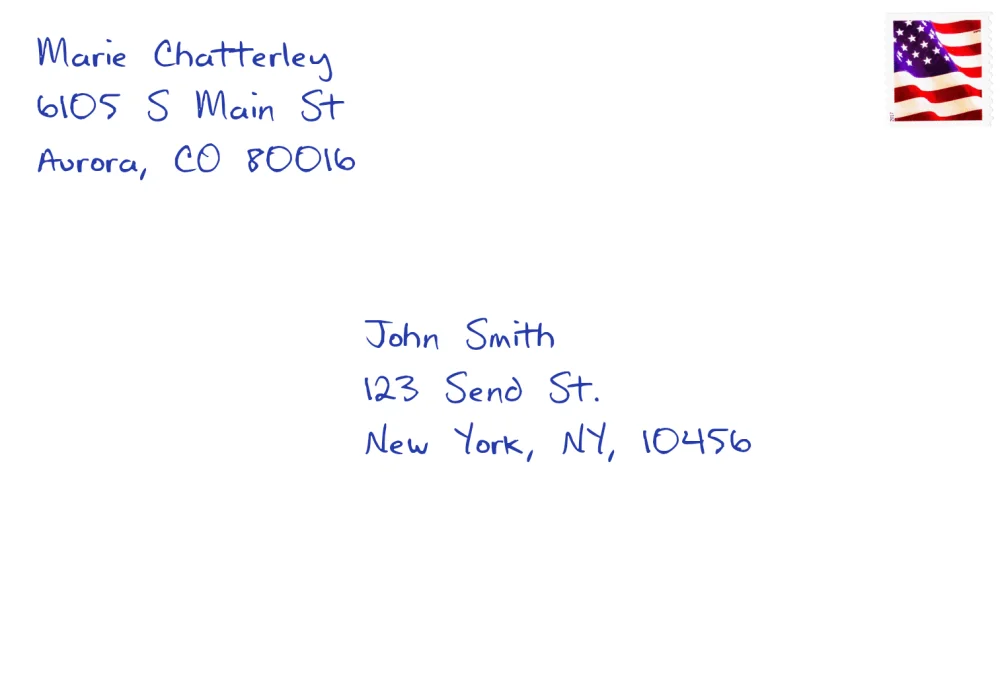 Marie Chatterley
6105 S Main St
Aurora, CO 80016
John Smith
123 Send St.
New York, NY, 10456